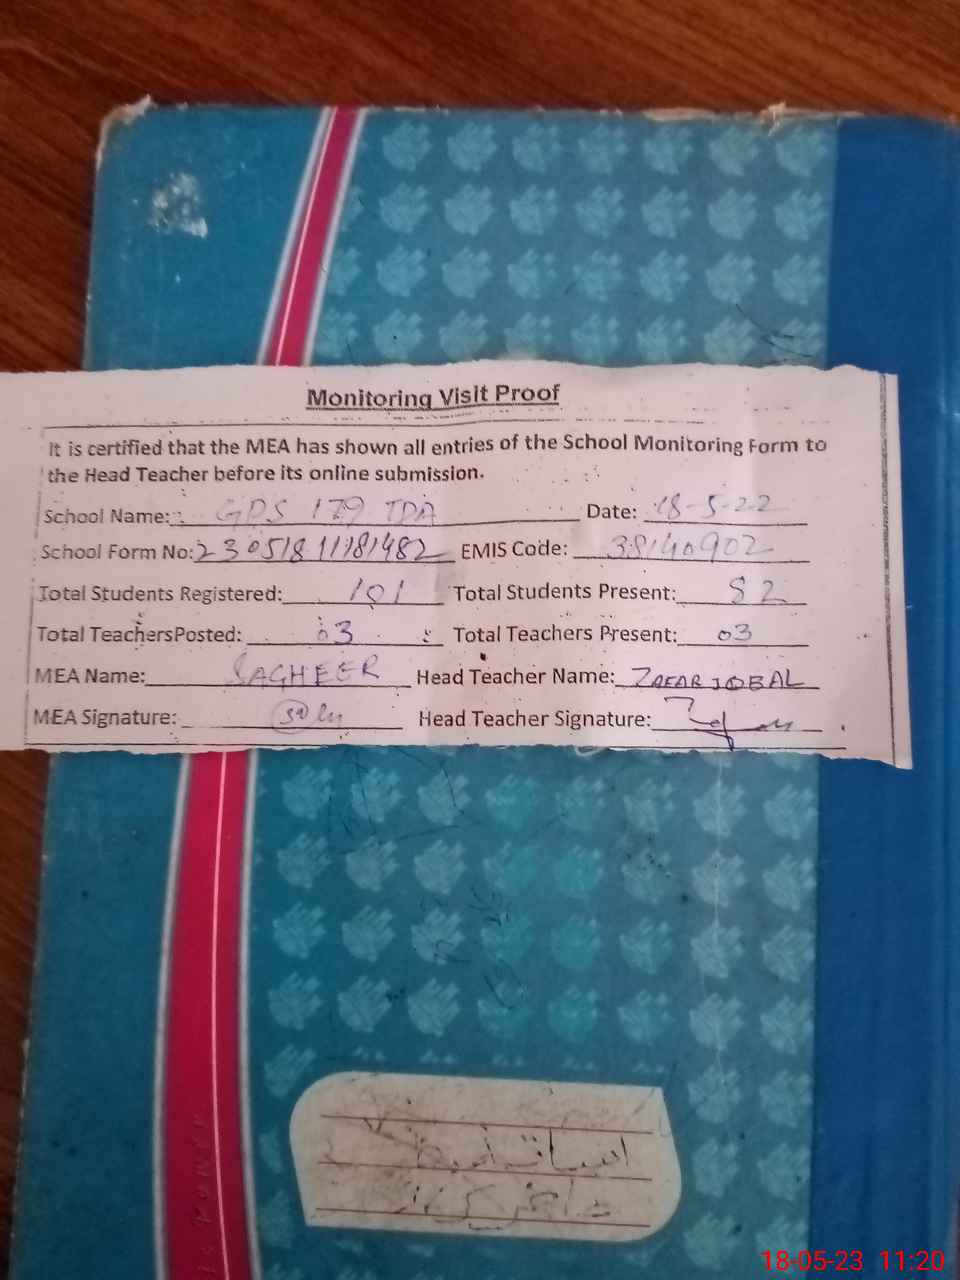 Monitoring Visit Proof
It is certified that the MEA has shown all entries of the School Monitoring Form to
the Head Teacher before its online submission.
School Name: GPS 179 TDA Date: 18-5-22
School Form No: 23051811181482 EMIS Code: 38140902
Total Students Registered: 101 Total Students Present: 82
Total TeachersPosted: 03 Total Teachers Present: 03
MEA Name: SAGHEER Head Teacher Name: ZAFAR IQBAL
MEA Signature: Head Teacher Signature:
18-05-23 11:20